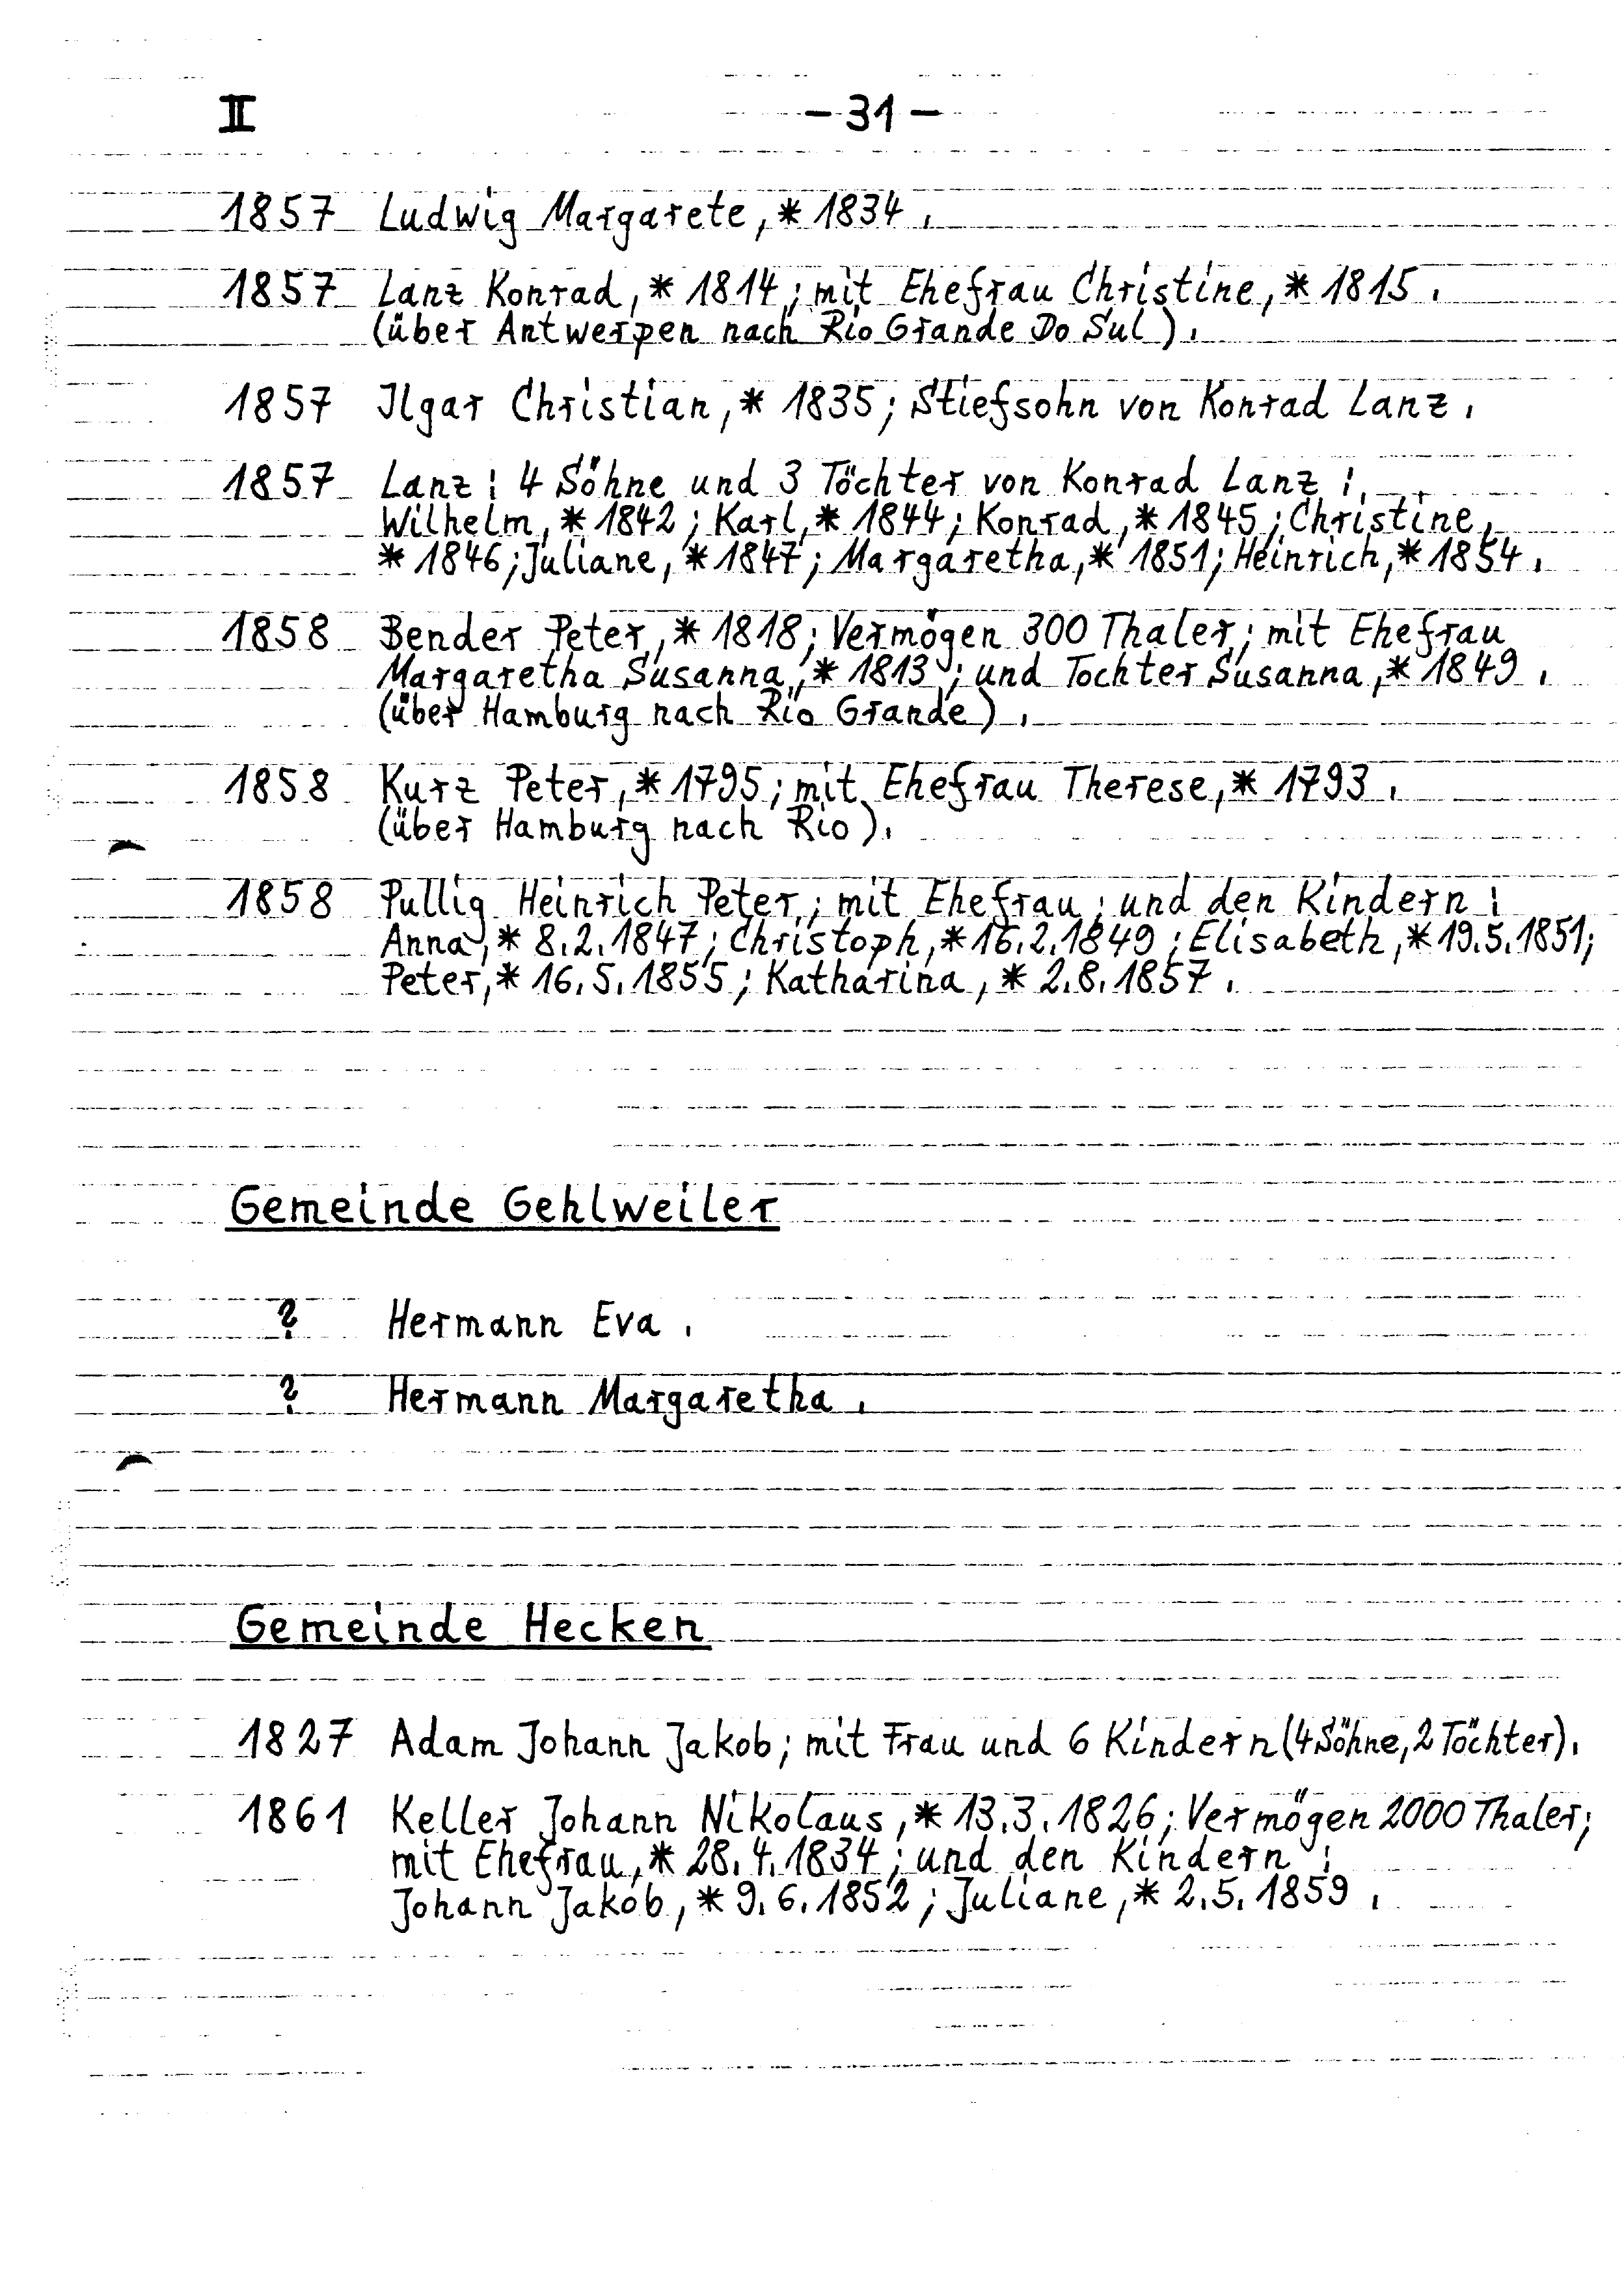 II - 31 -
1857 Ludwig Margarete, * 1834.
1857 Lanz Konrad, * 1814; mit Ehefrau Christine, * 1815.
(über Antwerpen nach Rio Grande Do Sul).
1857 Ilgar Christian, * 1835; Stiefsohn von Konrad Lanz.
1857 Lanz: 4 Söhne und 3 Töchter von Konrad Lanz:
Wilhelm, * 1842; Karl, * 1844; Konrad, * 1845; Christine,
* 1846; Juliane, * 1847; Margaretha, * 1851; Heinrich, * 1854.
1858 Bender Peter, * 1818; Vermögen 300 Thaler; mit Ehefrau
Margaretha Susanna, * 1813; und Tochter Susanna, * 1849.
(über Hamburg nach Rio Grande).
1858 Kurz Peter, * 1795; mit Ehefrau Therese, * 1793.
(über Hamburg nach Rio).
1858 Pullig Heinrich Peter; mit Ehefrau; und den Kindern:
Anna, * 8.2.1847; Christoph, * 16.2.1849; Elisabeth, * 19.5.1851;
Peter, * 16.5.1855; Katharina, * 2.8.1857.
Gemeinde Gehlweiler
? Hermann Eva.
? Hermann Margaretha.
Gemeinde Hecken
1827 Adam Johann Jakob; mit Frau und 6 Kindern (4 Söhne, 2 Töchter).
1861 Keller Johann Nikolaus, * 13.3.1826; Vermögen 2000 Thaler;
mit Ehefrau, * 28.4.1834; und den Kindern:
Johann Jakob, * 9.6.1852; Juliane, * 2.5.1859.